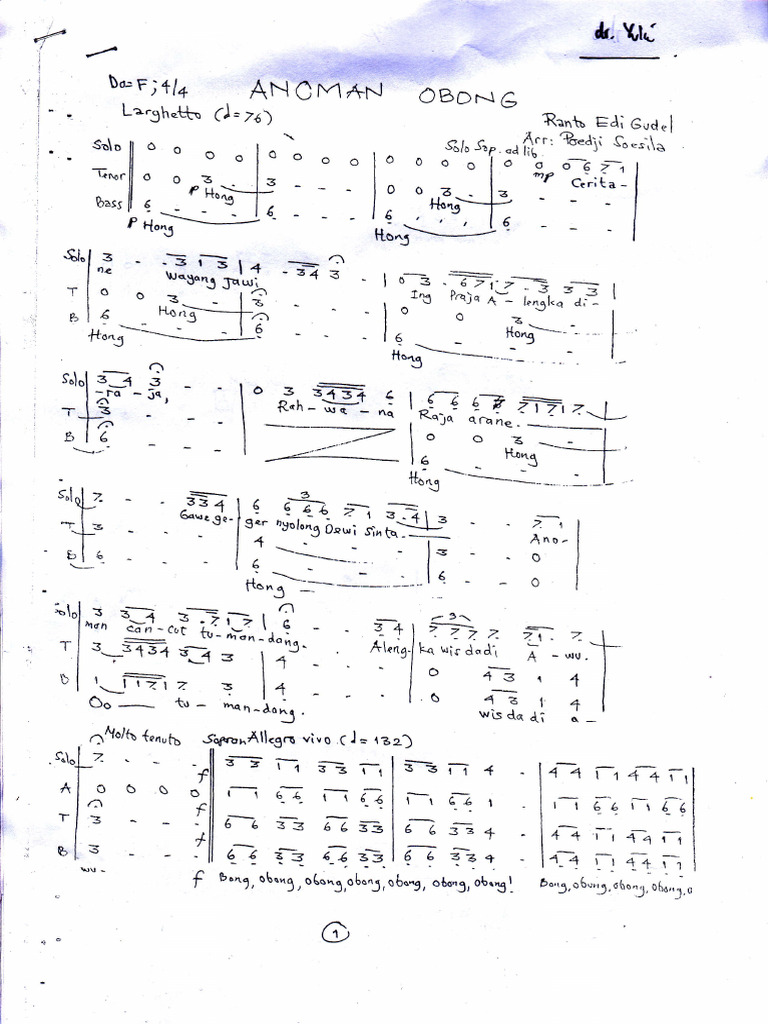 dr. Yuli
Do=F ; 4/4 ANOMAN OBONG
Larghetto (d=76)
Ranto Edi Gudel
Arr: Poedji Soesila
Solo Sop. ad lib.
Solo 0 0 0 0 | 0 0 0 0 | 0 0 0 0 | 0 0 0 6 7 1
mp Cerita-
Tenor 0 0 3 . | 3 - - - | 0 0 3 - | 3 - - -
P Hong Hong
Bass 6 - - - | 6 - - - | 6 , , , | 6 - - -
P Hong Hong
Solo 3 - . 3 1 3 | 4 . 3 4 3 . | 0 3 . 6 7 1 7 . 3 3 3 |
ne wayang Jawi Ing Praja A-lengka di-
T 0 0 3 - | 3 - - - | 0 0 3 -
Hong Hong
B 6 - - - | 6 - - - | 6 - - -
Hong Hong
Solo 3 4 3 - - | 0 3 3 4 3 4 6 | 6 6 6 7 7 1 7 1 7
-ra-ja, Rah-wa-na Raja arane.
T 3 - - - | 0 0 3 -
Hong
B 6 - - - | 6 - - -
Hong
3
Solo 7 - - 3 3 4 | 6 6 6 6 7 1 3 . 4 | 3 - - 7 1
Gawe ge-ger nyolong Dewi Sinta. Ano-
T 3 - - - | 4 - - - | 3 - - 0
B 6 - - - | 6 - - - | 6 - - 0
Hong
3
Solo 3 3 4 3 . 7 1 7 | 6 - - 3 4 | 7 7 7 7 7 1 . 7
man can-cut tu-man-dang. Aleng-ka wis dadi A-wu.
T 3 3 4 3 4 3 4 3 | 4 - - - | 0 4 3 1 4
B 1 1 1 7 1 7 3 | 4 - - - | 0 4 3 1 4
Oo tu-man-dang. wis da di a-
Molto tenuto Sopran Allegro vivo (d=132)
Solo 7 - - - f 3 3 1 1 3 3 1 1 | 3 3 1 1 4 - | 4 4 1 1 4 4 1 1
A 0 0 0 0 f 1 1 6 6 1 1 6 6 | 1 1 6 6 1 - | 1 1 6 6 1 1 6 6
T 3 - - - f 6 6 3 3 6 6 3 3 | 6 6 3 3 4 - | 4 4 1 1 4 4 1 1
B 3 - - - 6 6 3 3 6 6 3 3 | 6 6 3 3 4 - | 4 4 1 1 4 4 1 1
wu- f Bong, obong, obong, obong, obong, obong, obong! Bong, obong, obong, obong, o
1